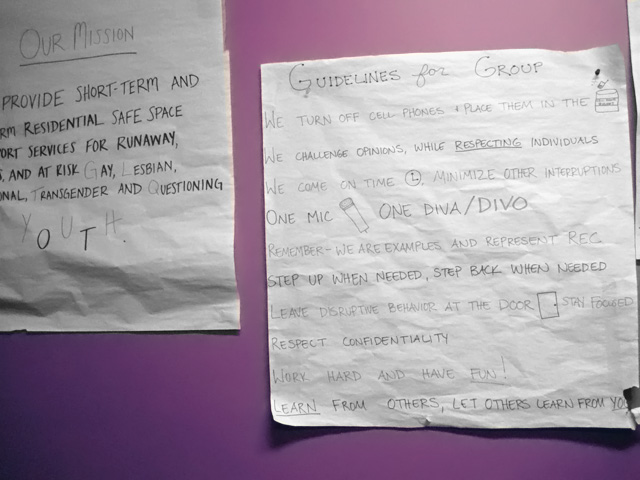 OUR MISSION
PROVIDE SHORT-TERM AND
RM RESIDENTIAL SAFE SPACE
ORT SERVICES FOR RUNAWAY,
S, AND AT RISK GAY, LESBIAN,
ONAL, TRANSGENDER AND QUESTIONING
YOUTH.
GUIDELINES for GROUP
WE TURN OFF CELL PHONES + PLACE THEM IN THE
WE CHALLENGE OPINIONS, WHILE RESPECTING INDIVIDUALS
WE COME ON TIME, MINIMIZE OTHER INTERRUPTIONS
ONE MIC ONE DIVA/DIVO
REMEMBER - WE ARE EXAMPLES AND REPRESENT REC
STEP UP WHEN NEEDED, STEP BACK WHEN NEEDED
LEAVE DISRUPTIVE BEHAVIOR AT THE DOOR STAY FOCUSED
RESPECT CONFIDENTIALITY
WORK HARD AND HAVE FUN!
LEARN FROM OTHERS, LET OTHERS LEARN FROM YO